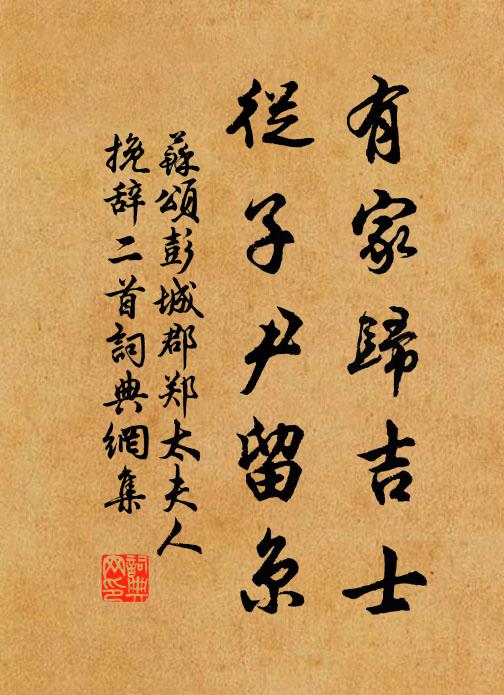 有家歸吉士
從子尹留京
蘇頌彭城郡郑太夫人
挽辞二首詞典網集
詞典网印